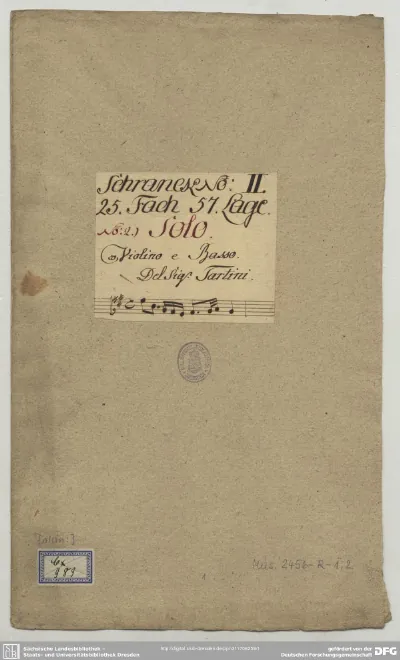 Schranck No: II.
25. Fach 57. Lage.
No: 2.) Solo.
Violino e Basso.
Del Sigr. Tartini.
Mus. 2456-R-8,2
1
Sächsische Landesbibliothek -
Staats- und Universitätsbibliothek Dresden
gefördert von der
Deutschen Forschungsgemeinschaft
DFG